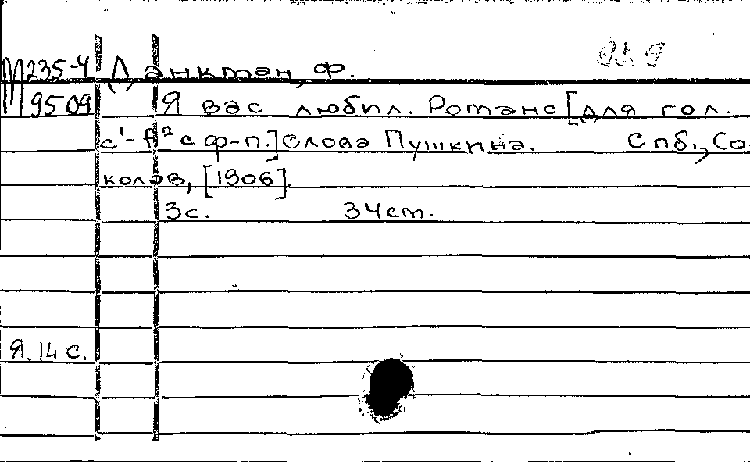 М235-4 Данктан, Ф.
9509 Я вас любил. Романс [для гол.
c¹-f² с ф-п.] слова Пушкина. Спб., Со
колов, [1906].
3с. 34 cm.
Я. 14 с.